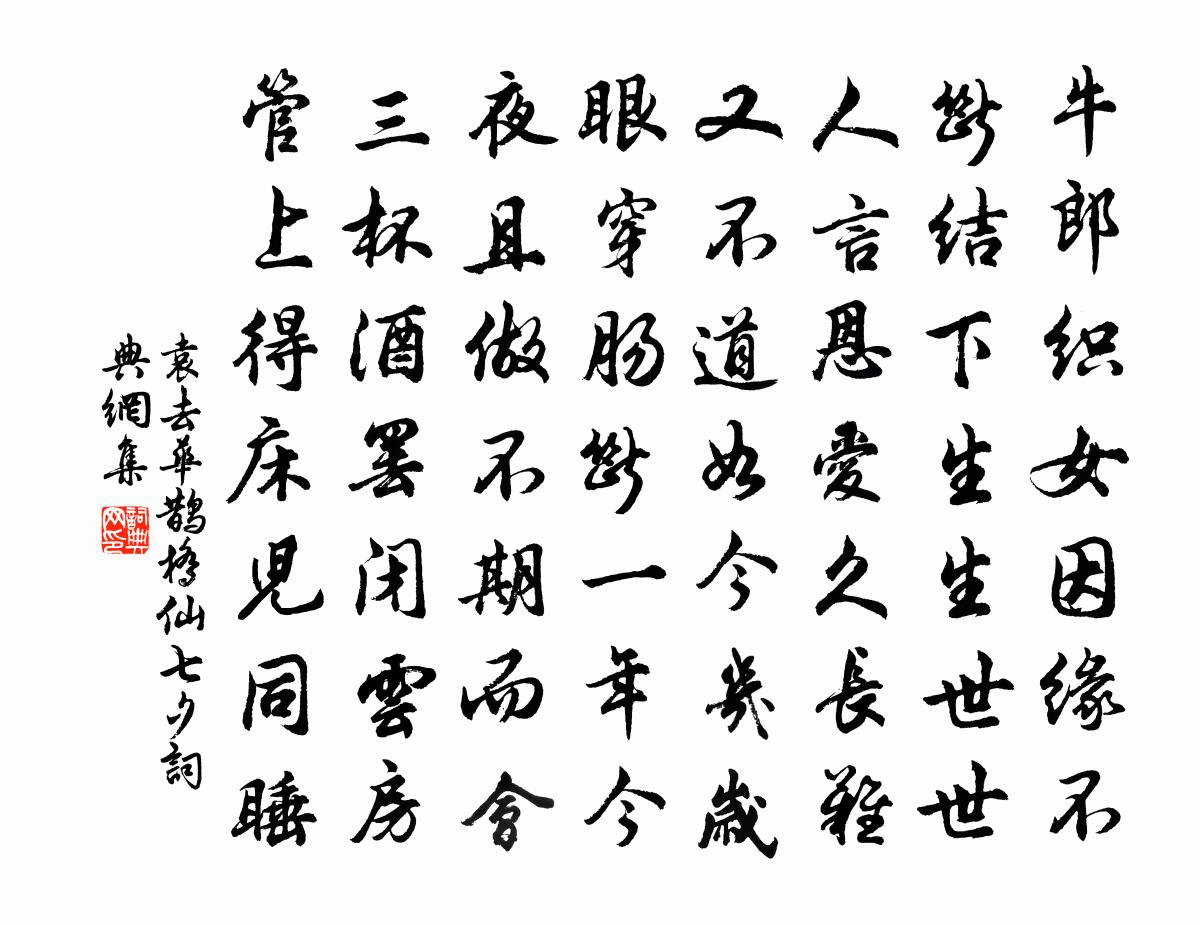 牛郎织女因缘不
斷结下生生世世
人言恩愛久長難
又不道如今幾歲
眼穿肠斷一年今
夜且做不期而會
三杯酒罢闭雲房
管上得床兒同睡
袁去華鹊橋仙七夕詞
典網集
詞典网印